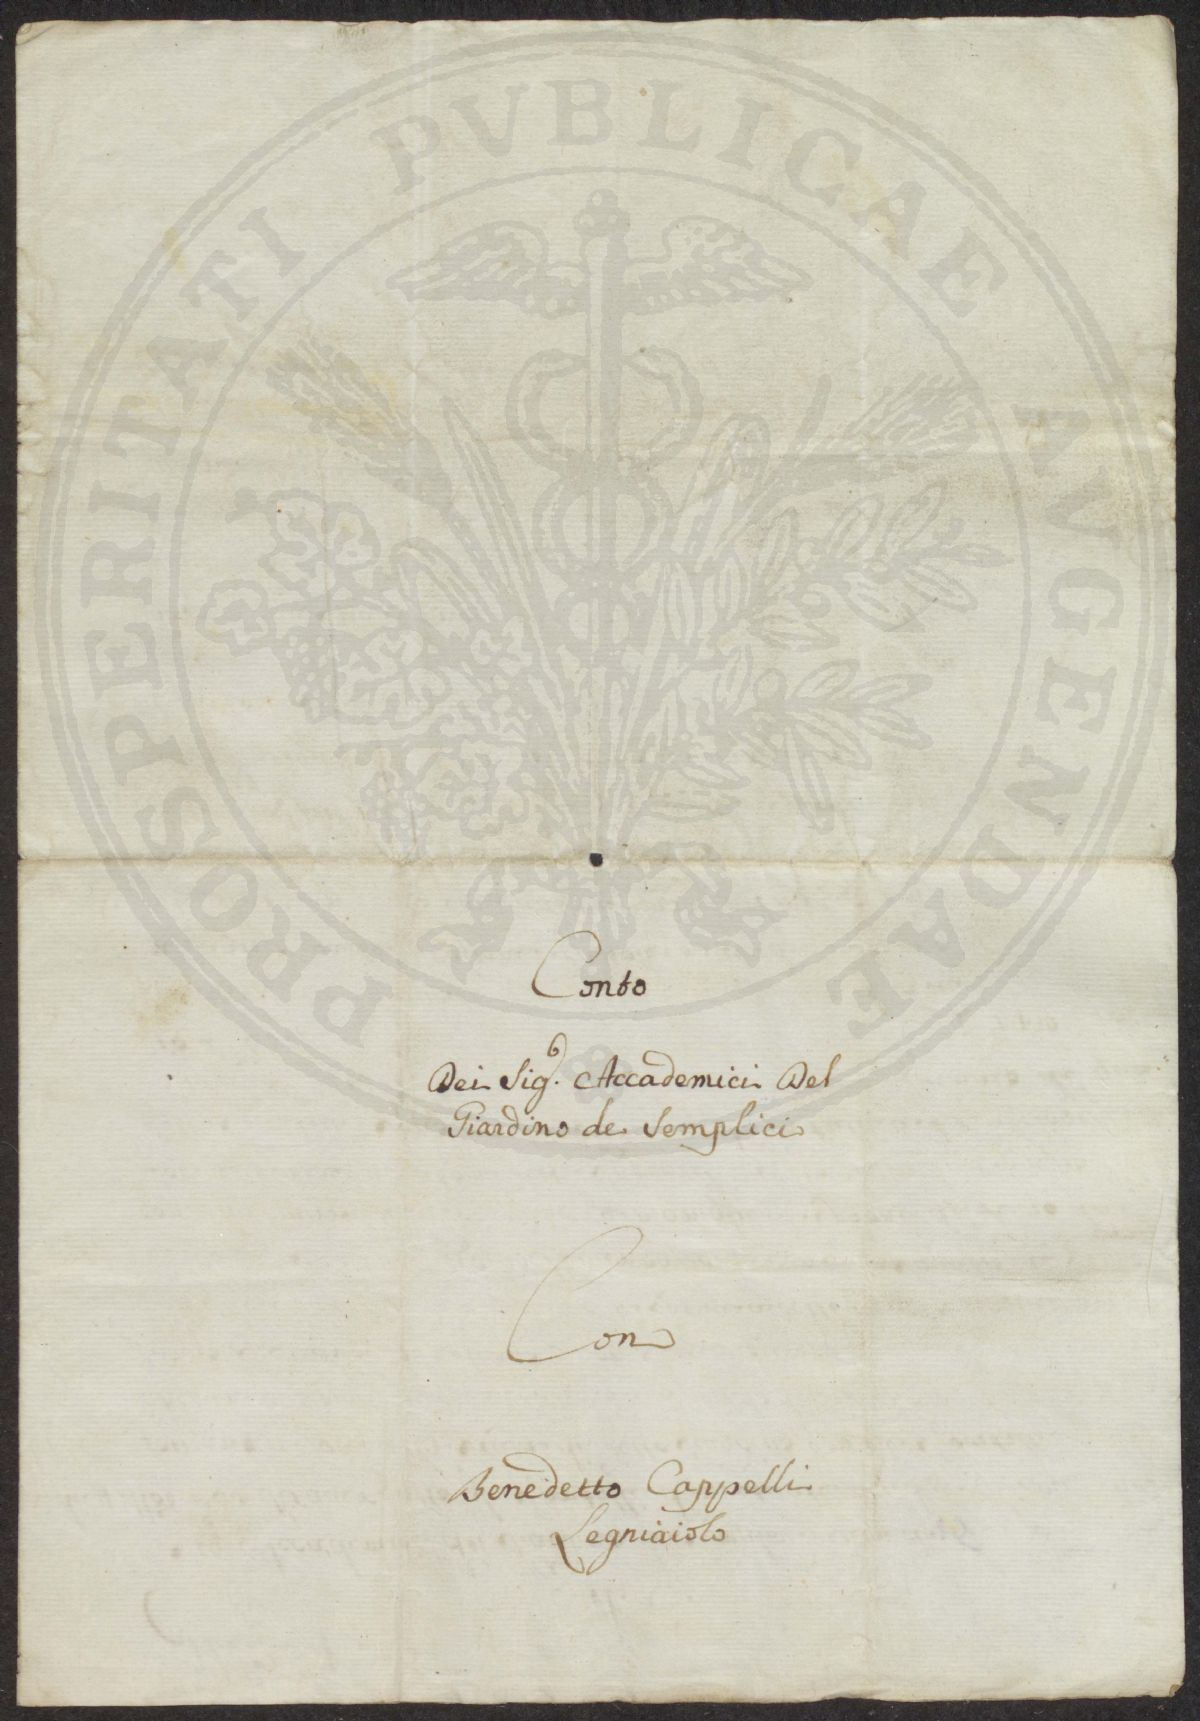 PROSPERITATI PVBLICAE AVGENDAE
Conto
Dei Sig.ͬ Accademici Del
Giardino de Semplici
Con
Benedetto Cappelli
Legniaiolo